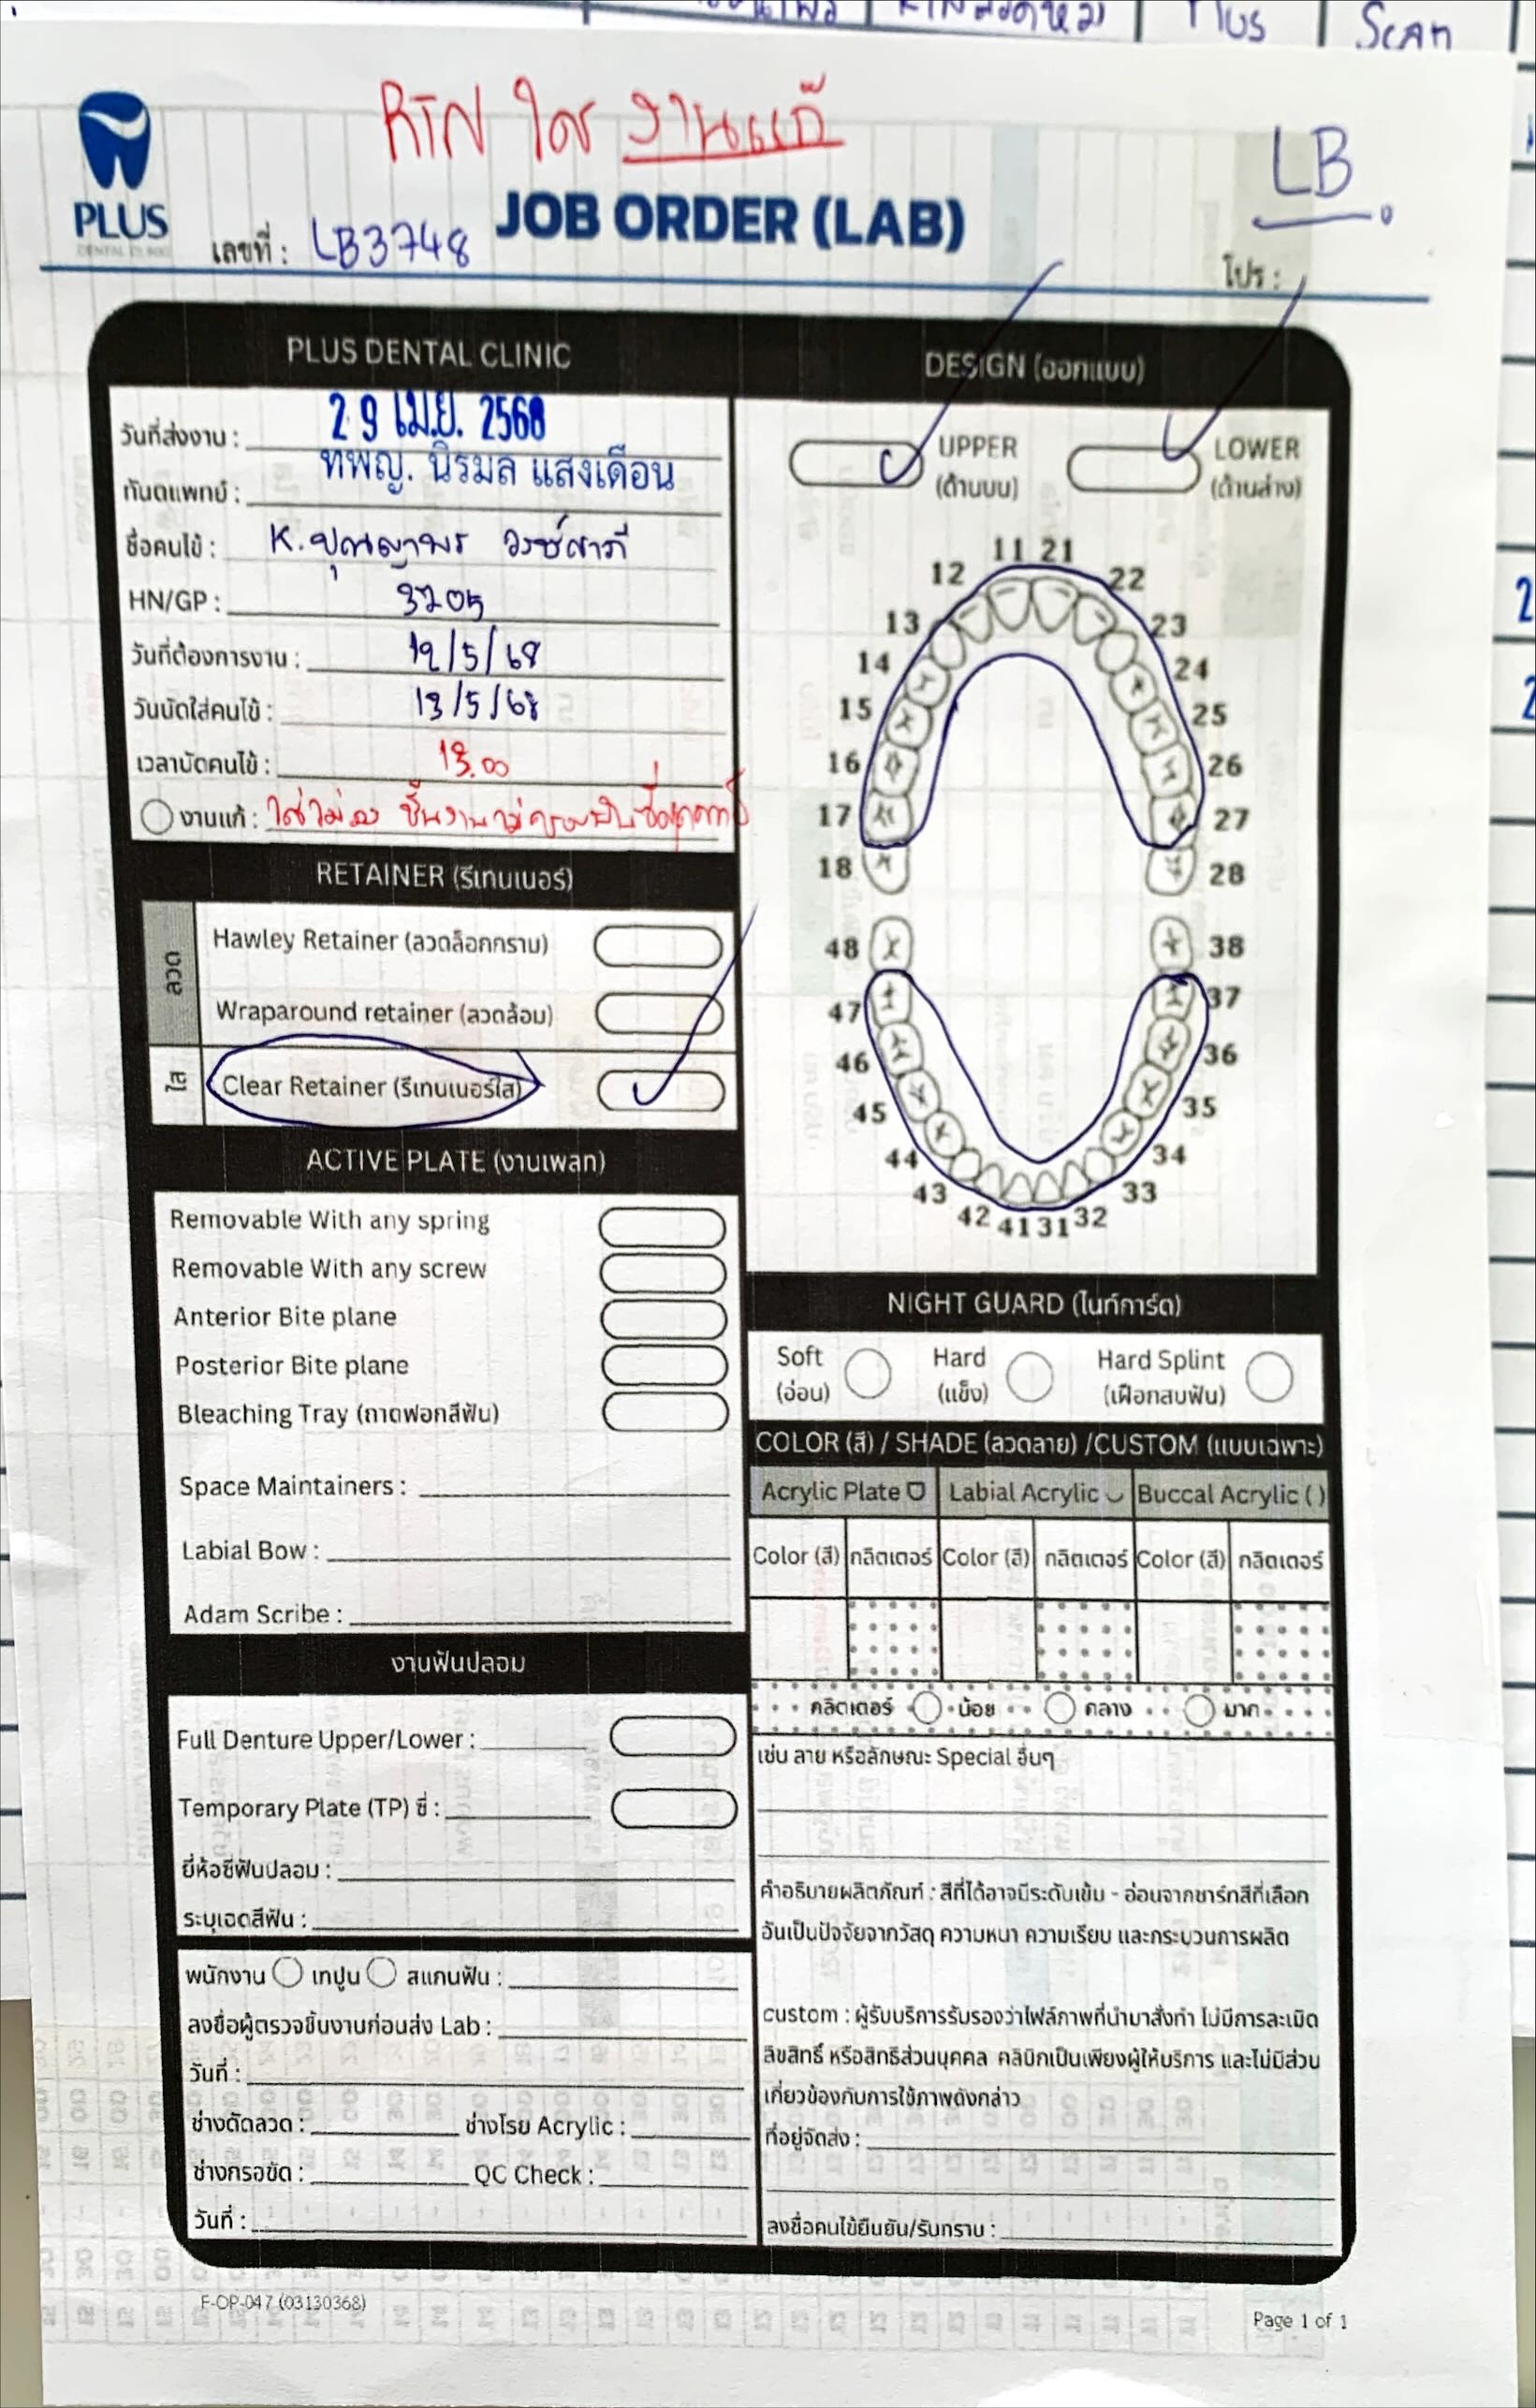 Plus
Scan
RTN ใส งานแก้
LB
PLUS
DENTAL CLINIC
JOB ORDER (LAB)
เลขที่ : LB3748
โปร :
PLUS DENTAL CLINIC
วันที่ส่งงาน : 29 เม.ย. 2568
ทันตแพทย์ : ทพญ. นิรมล แสงเดือน
ชื่อคนไข้ : K. ปุณญาพร วงษ์สาลี
HN/GP : 3705
วันที่ต้องการงาน : 12/5/68
วันนัดใส่คนไข้ : 13/5/68
เวลานัดคนไข้ : 13.00
งานแก้ : ใส่ไม่ลง ชิ้นงานไม่ครอบฟัน
RETAINER (รีเทนเนอร์)
ลวด
Hawley Retainer (ลวดล็อกกราม)
Wraparound retainer (ลวดล้อม)
ใส
Clear Retainer (รีเทนเนอร์ใส)
ACTIVE PLATE (งานเพลท)
Removable With any spring
Removable With any screw
Anterior Bite plane
Posterior Bite plane
Bleaching Tray (ถาดฟอกสีฟัน)
Space Maintainers :
Labial Bow :
Adam Scribe :
งานฟันปลอม
Full Denture Upper/Lower :
Temporary Plate (TP) ซี่ :
ยี่ห้อซี่ฟันปลอม :
ระบุเฉดสีฟัน :
พนักงาน เทปูน สแกนฟัน :
ลงชื่อผู้ตรวจชิ้นงานก่อนส่ง Lab :
วันที่ :
ช่างดัดลวด : ช่างโรย Acrylic :
ช่างกรอขัด : QC Check :
วันที่ :
DESIGN (ออกแบบ)
UPPER
(ด้านบน)
LOWER
(ด้านล่าง)
11 21
12 22
13 23
14 24
15 25
16 26
17 27
18 28
48 38
47 37
46 36
45 35
44 34
43 33
42 41 31 32
NIGHT GUARD (ไนท์การ์ด)
Soft
(อ่อน)
Hard
(แข็ง)
Hard Splint
(เฝือกสบฟัน)
COLOR (สี) / SHADE (ลวดลาย) /CUSTOM (แบบเฉพาะ)
Acrylic Plate Labial Acrylic Buccal Acrylic ( )
Color (สี) กลิตเตอร์ Color (สี) กลิตเตอร์ Color (สี) กลิตเตอร์
กลิตเตอร์ น้อย กลาง มาก
เช่น ลาย หรือลักษณะ Special อื่นๆ
คำอธิบายผลิตภัณฑ์ : สีที่ได้อาจมีระดับเข้ม - อ่อนจากชาร์ทสีที่เลือก
อันเป็นปัจจัยจากวัสดุ ความหนา ความเรียบ และกระบวนการผลิต
custom : ผู้รับบริการรับรองว่าไฟล์ภาพที่นำมาสั่งทำ ไม่มีการละเมิด
ลิขสิทธิ์ หรือสิทธิส่วนบุคคล คลินิกเป็นเพียงผู้ให้บริการ และไม่มีส่วน
เกี่ยวข้องกับการใช้ภาพดังกล่าว
ที่อยู่จัดส่ง :
ลงชื่อคนไข้ยืนยัน/รับทราบ :
F-OP-047 (03130368)
Page 1 of 1